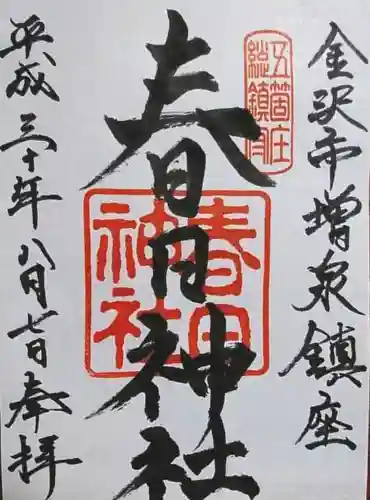 金沢市増泉鎮座
五箇庄
総鎮守
春日神社
春日
神社
平成三十年八月七日奉拝